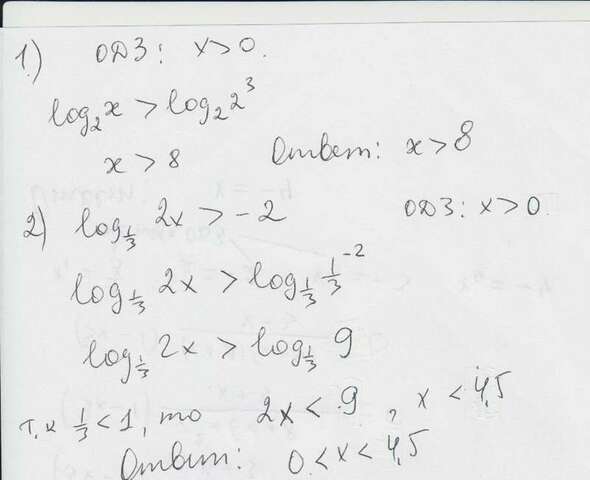 1.) ОДЗ: x>0.
log₂x > log₂2³
x > 8 Ответ: x > 8
2) log_{1/3} 2x > -2 ОДЗ: x>0.
log_{1/3} 2x > log_{1/3} 1/3⁻²
log_{1/3} 2x > log_{1/3} 9
т.к 1/3 < 1, то 2x < 9, x < 4,5
Ответ: 0 < x < 4,5